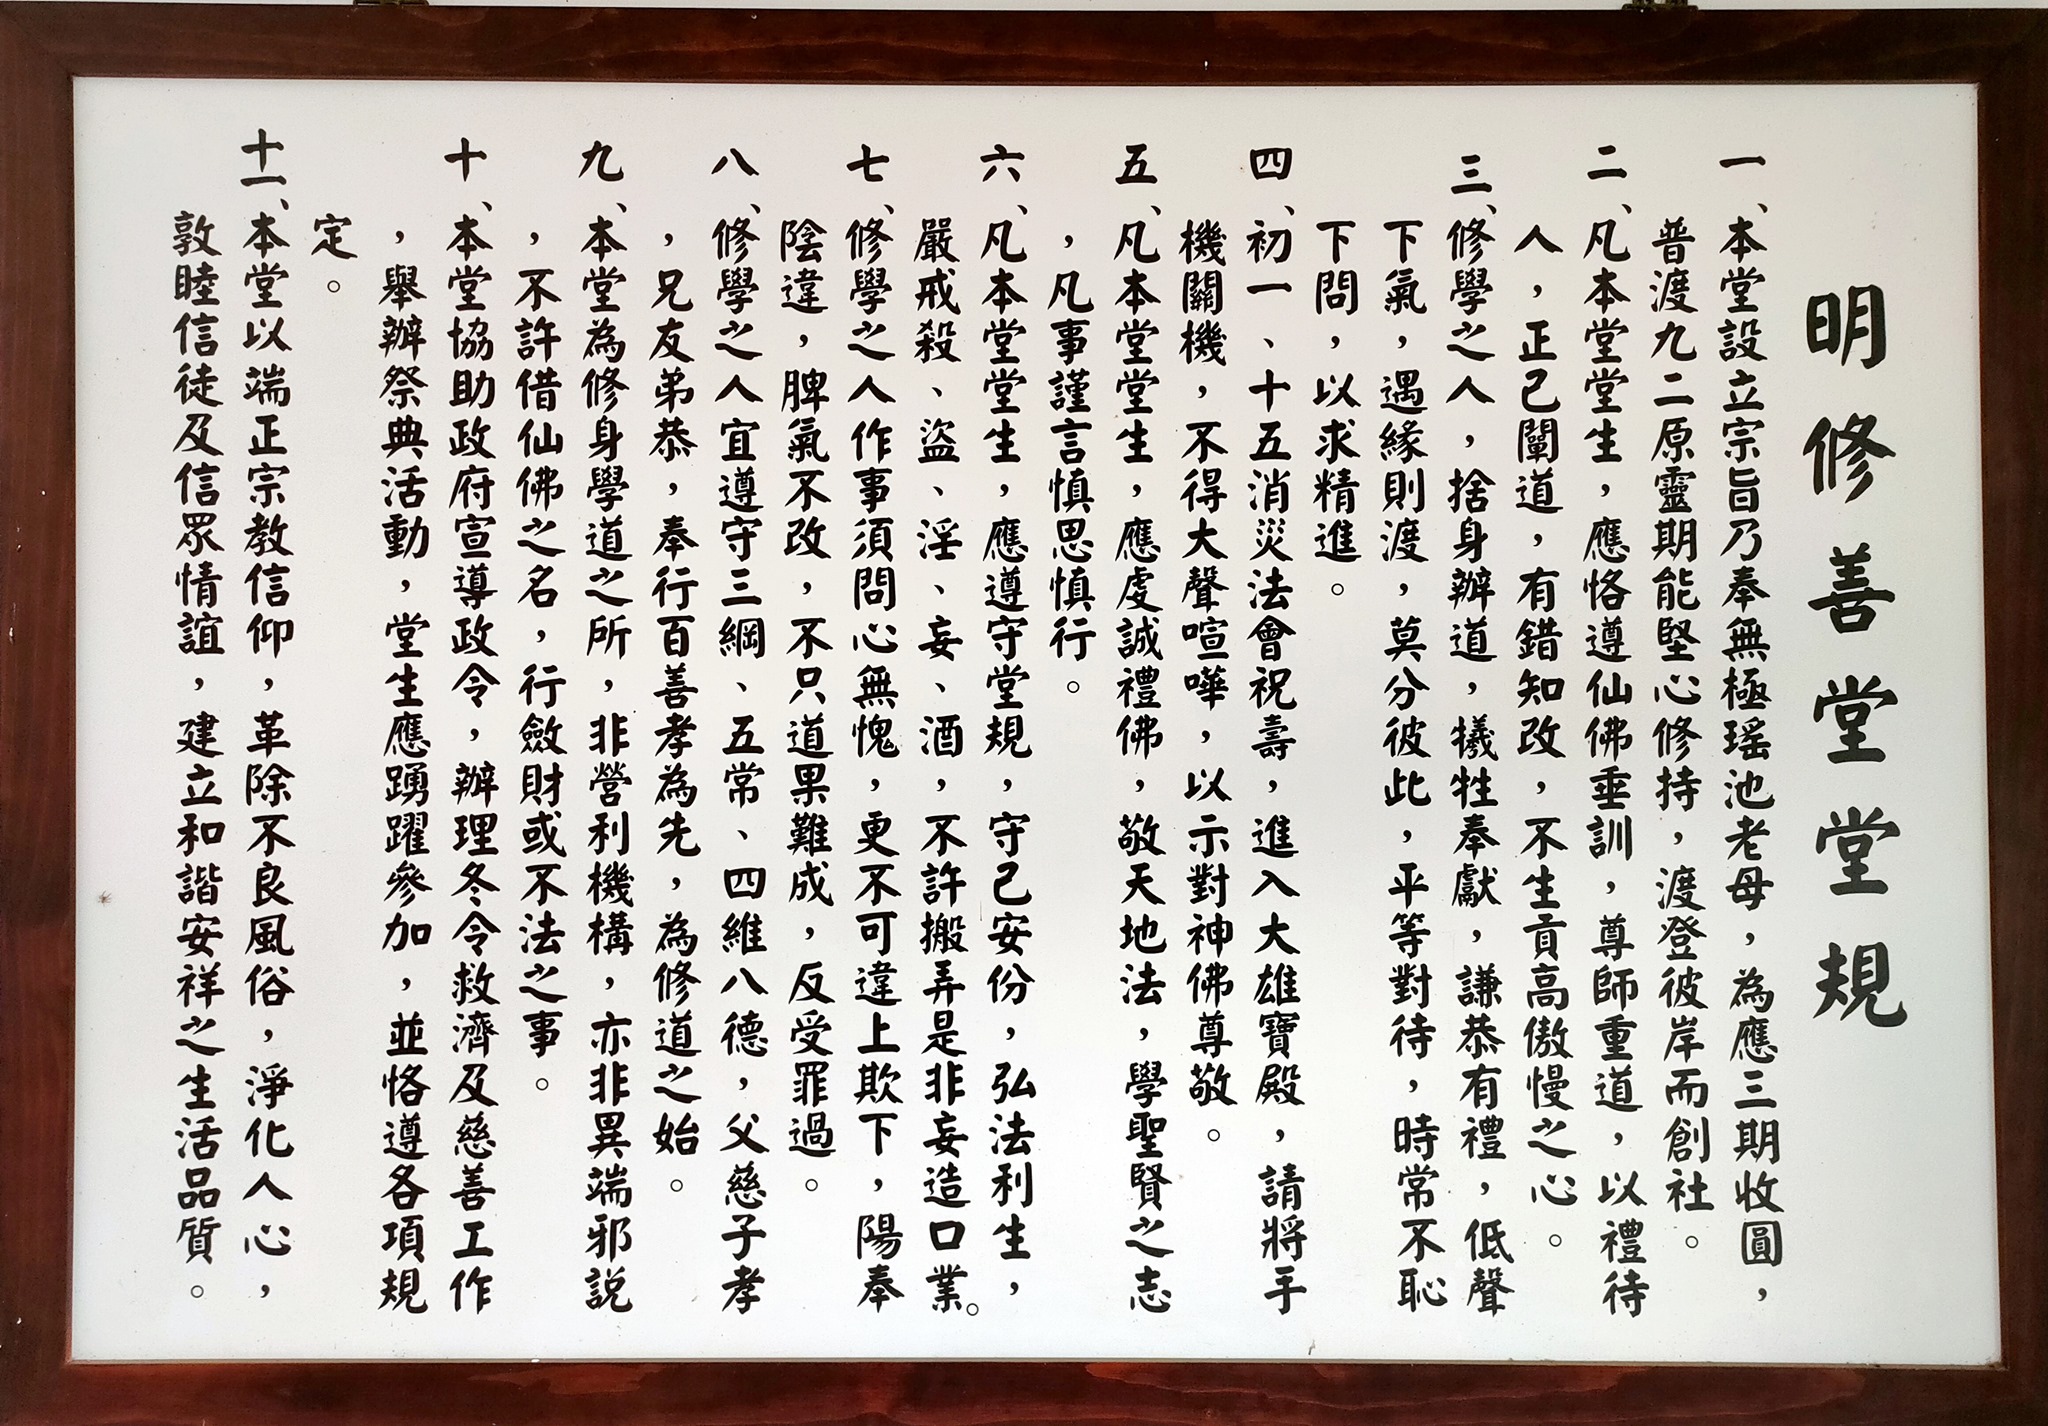 明修善堂堂規
一、本堂設立宗旨乃奉無極瑤池老母，為應三期收圓，
普渡九二原靈期能堅心修持，渡登彼岸而創社。
二、凡本堂堂生，應恪遵仙佛垂訓，尊師重道，以禮待
人，正己闡道，有錯知改，不生貢高傲慢之心。
三、修學之人，捨身辦道，犧牲奉獻，謙恭有禮，低聲
下氣，遇緣則渡，莫分彼此，平等對待，時常不恥
下問，以求精進。
四、初一、十五消災法會祝壽，進入大雄寶殿，請將手
機關機，不得大聲喧嘩，以示對神佛尊敬。
五、凡本堂堂生，應虔誠禮佛，敬天地法，學聖賢之志
，凡事謹言慎思慎行。
六、凡本堂堂生，應遵守堂規，守己安份，弘法利生，
嚴戒殺、盜、淫、妄、酒，不許搬弄是非妄造口業。
七、修學之人作事須問心無愧，更不可違上欺下，陽奉
陰違，脾氣不改，不只道果難成，反受罪過。
八、修學之人宜遵守三綱、五常、四維八德，父慈子孝
，兄友弟恭，奉行百善孝為先，為修道之始。
九、本堂為修身學道之所，非營利機構，亦非異端邪説
，不許借仙佛之名，行斂財或不法之事。
十、本堂協助政府宣導政令，辦理冬令救濟及慈善工作
，舉辦祭典活動，堂生應踴躍參加，並恪遵各項規
定。
十一、本堂以端正宗教信仰，革除不良風俗，淨化人心，
敦睦信徒及信眾情誼，建立和諧安祥之生活品質。